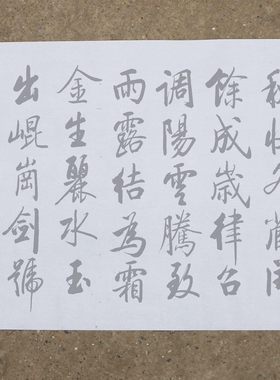 秋收冬藏閏
餘成歲律召
调陽雲騰致
雨露結為霜
金生麗水玉
出崐崗劍號